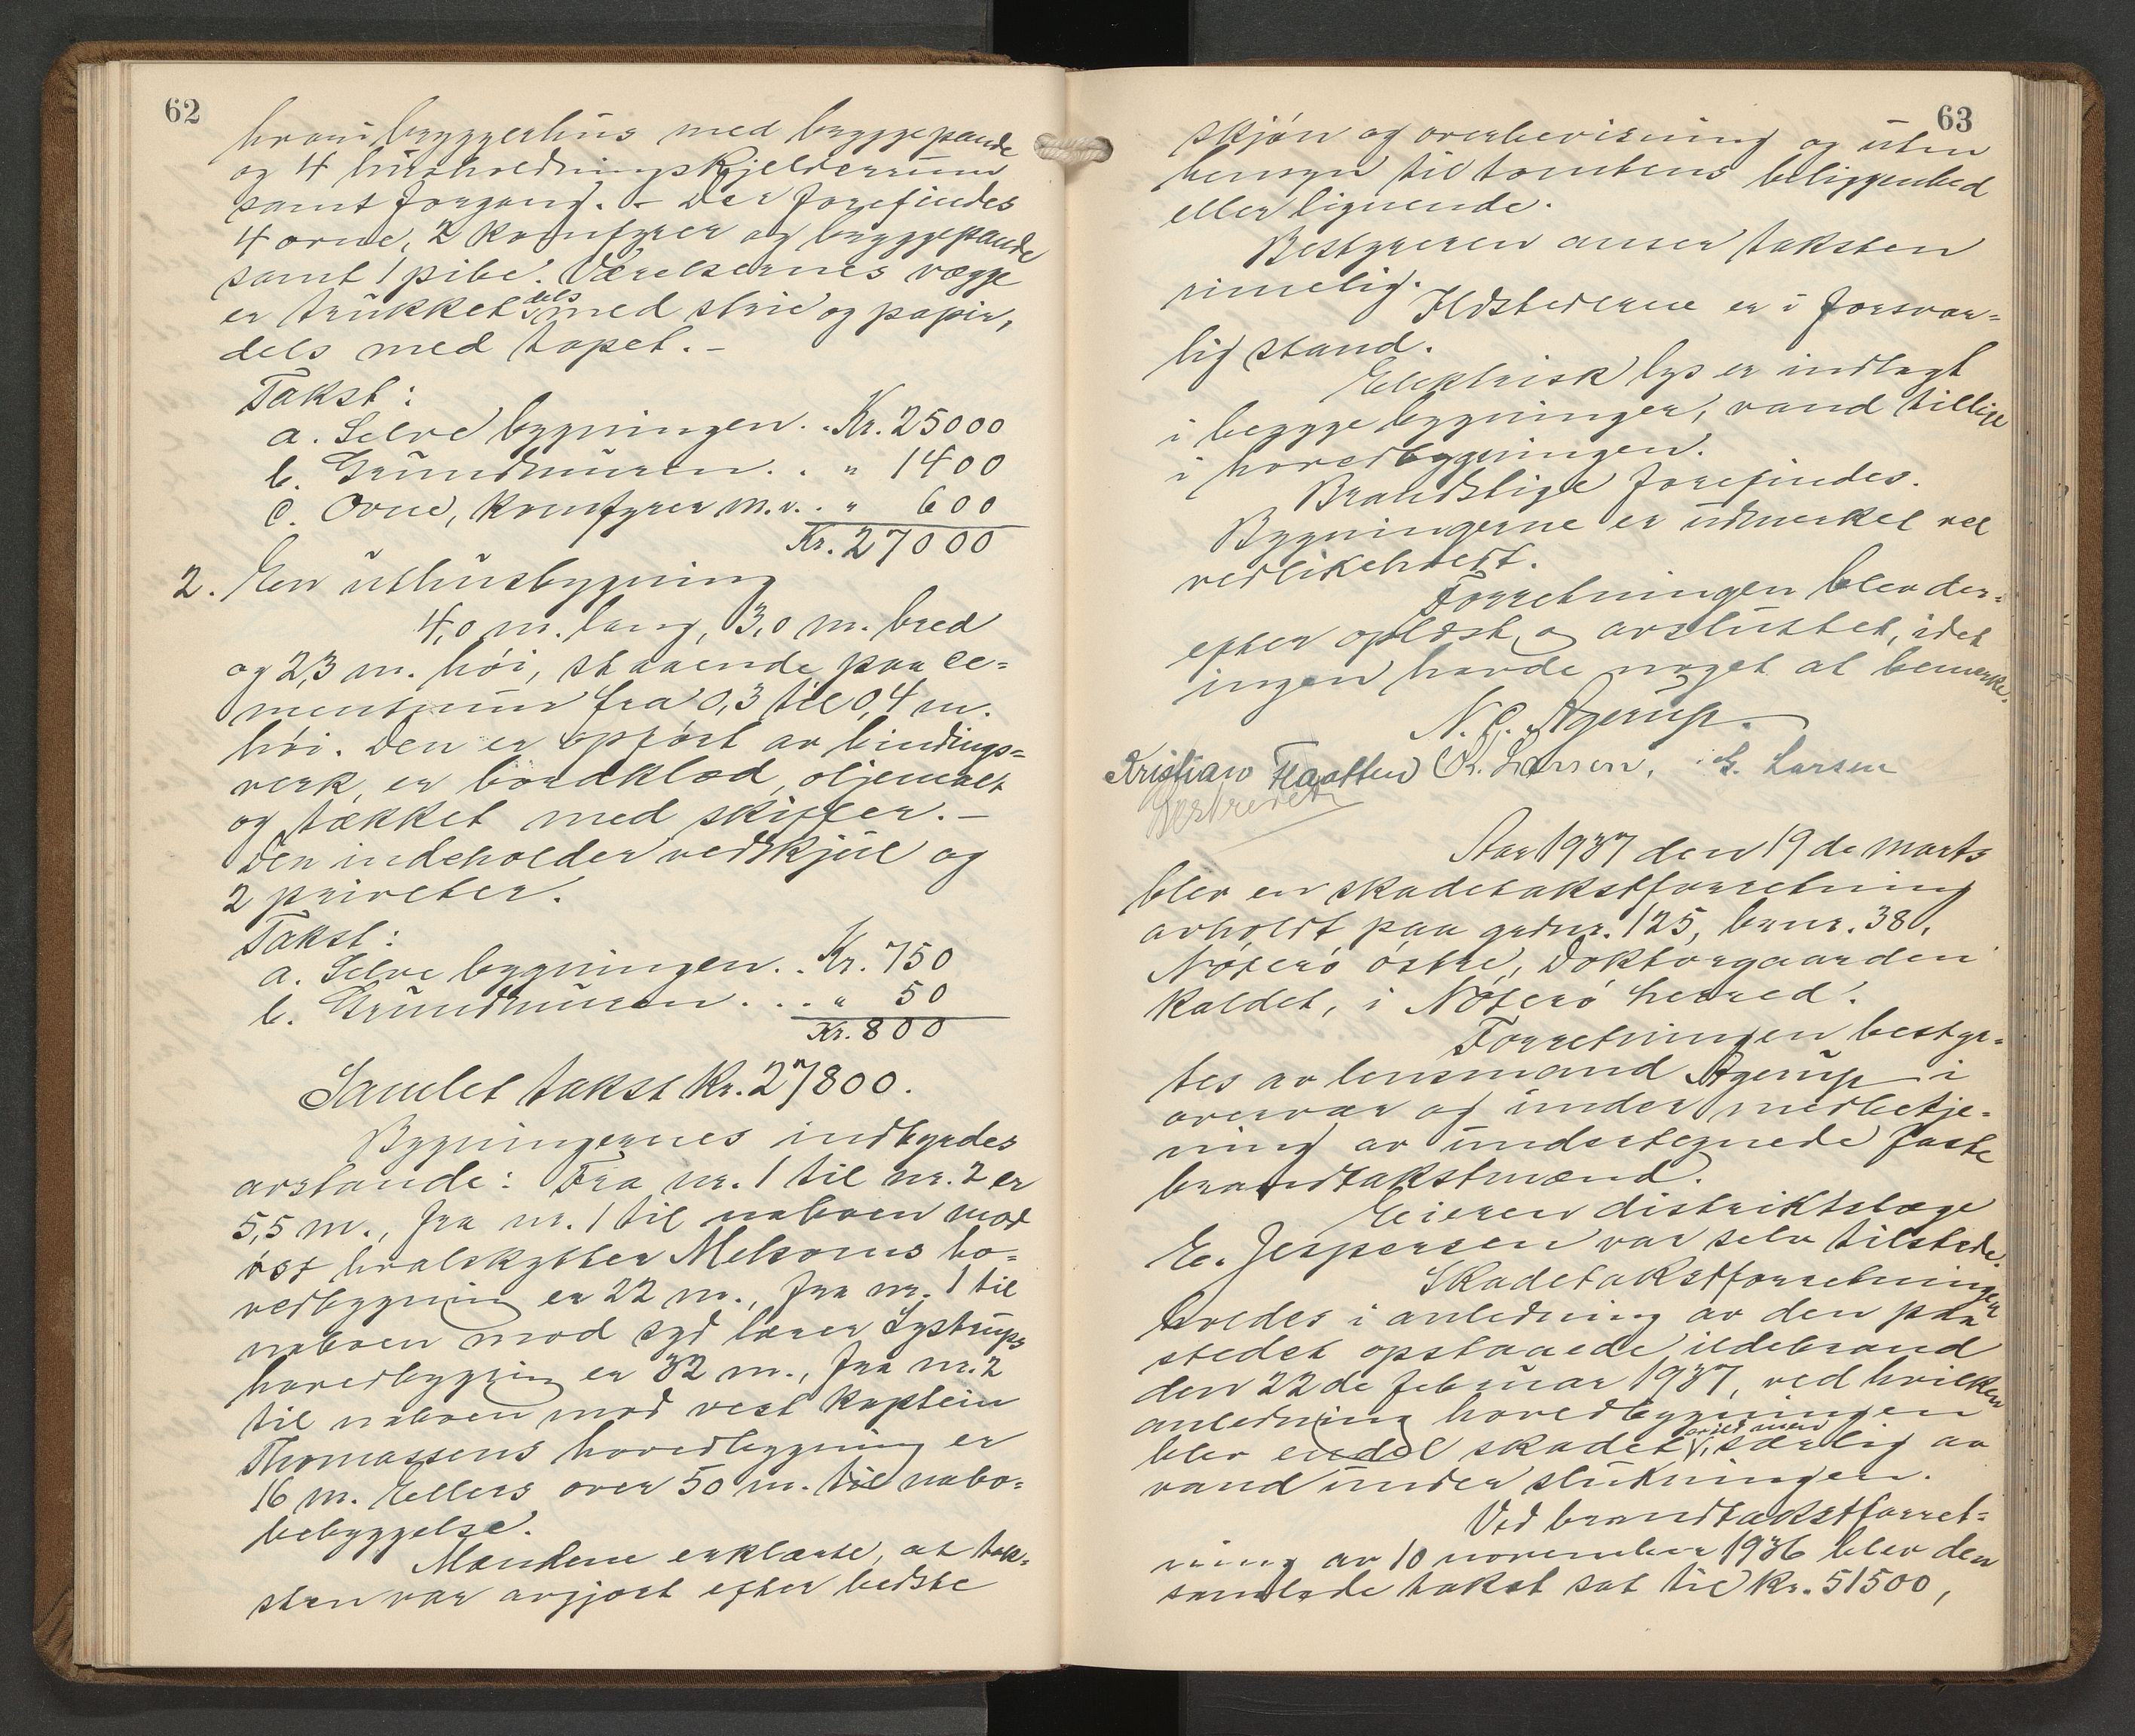 62
hvori bryggerhus med bryggepande
og 4 husholdningskjelderrum
samt forgang. - Der forefindes
4 ovne, 2 komfyrer og bryggepande
samt 1 pibe. Værelsernes vægge
er trukket dels med strie og papir,
dels med tapet. -
Takst:
a. Selve bygningen. . Kr. 25000
b. Grundmuren. . " 1400
c. Ovne, komfyrer m.v. . " 600
Kr. 27000
2. En uthusbygning
4,0 m. lang, 3,0 m. bred
og 2,3 m. høi, staaende paa ce=
mentmur fra 0,3 til 0,4 m.
høi. Den er opført av bindings=
verk, er bordklæd, oljemalt
og tækket med skifer. -
Den indeholder vedskjul og
2 priveter.
Takst:
a. Selve bygningen. . Kr. 750
b. Grundmuren. . . " 50
Kr. 800
Samlet takst Kr. 27800.
Bygningernes indbyrdes
avstande: Fra nr. 1 til nr. 2 er
5,5 m., fra nr. 1 til naboen mod
øst hvalskytter Melsoms ho=
vedbygning er 22 m., fra nr. 1 til
naboen mod syd lærer Systrups
hovedbygning er 32 m., fra nr. 2
til naboen mod vest kaptein
Thomassens hovedbygning er
16 m. Ellers over 50 m. til nabo=
bebyggelse.
Mændene erklærte, at tak=
sten var avgjort efter bedste
63
skjøn og overbevisning og uten
hensyn til tomtens beliggenhed
eller lignende.
Bestyreren anser taksten
rimelig.
Ildstederne er i forsvar=
lig stand.
Elektrisk lys er indlagt
i begge bygninger, vand tillige
i hovedbygningen.
Brandstige forefindes.
Bygningerne er utmerket vel
vedlikeholdt.
Forretningen blev der=
efter oplæst og avsluttet, idet
ingen havde noget at bemerke.
N. C. Agerup.
Kristian Haatten K. Larsen, G. Larsen
Aar 1937 den 19de marts
blev en skadetakstforretning
avholdt paa grdnr. 125, brnr. 38,
Nøterø østre, Doktorgaarden
kaldet, i Nøterø herred.
Forretningen besty=
tes av lensmand Agerup i
overvær og under medbetje=
ning av undertegnede faste
brandtakstmænd.
Eieren distriktslæge
E. Jespersen var selv tilstede.
Skadetakstforretningen
holdes i anledning av den paa
stedet opstaaede ildebrand
den 22de februar 1937, ved hvilken
anledning hovedbygningen
blev endel skadet av ild men særlig av
vand under slukningen.
Ved brandtakstforret=
ning av 10 november 1936 blev den
samlede takst sat til kr. 51500,